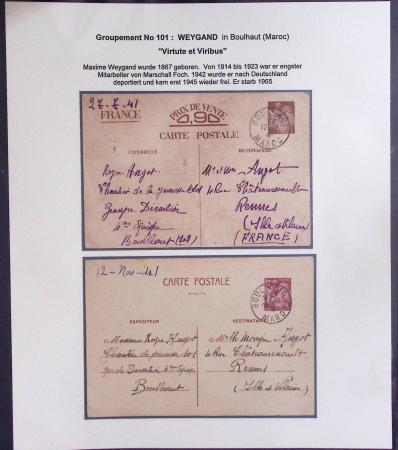 Groupement No 101 : WEYGAND in Boulhaut (Maroc)
"Virtute et Viribus"
Maxime Weygand wurde 1867 geboren. Von 1914 bis 1923 war er engster
Mitarbeiter von Marschall Foch. 1942 wurde er nach Deutschland
deportiert und kam erst 1945 wieder frei. Er starb 1965
27-7-41
FRANCE
PRIX DE VENTE
0,90
CARTE POSTALE
BOULHAUT
MAROC
EXPÉDITEUR
Roger Angot
Chantier de la jeunesse
Groupe Direction
4me Equipe
Boulhaut
DESTINATAIRE
Mr & Mme Angot
4 Rue Châteaurenault
Rennes
(Ille et Vilaine)
(FRANCE)
12-Nov-41
CARTE POSTALE
BOULHAUT
MAROC
EXPÉDITEUR
Monsieur Roger Angot
Chantier de jeunesse 101
gr. de Direction 4me Equipe
Boulhaut
DESTINATAIRE
Angot
4 Rue Châteaurenault
Rennes
(Ille et Vilaine)